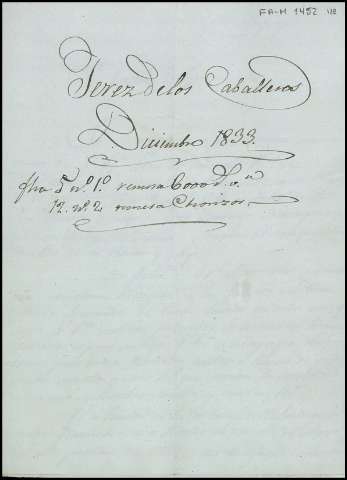 FA-M 1452
Jerez de los Caballeros
Diciembre 1833.
fha 5 nº. 1º. remesa 6000
12. nº. 2 remesa Chorizos